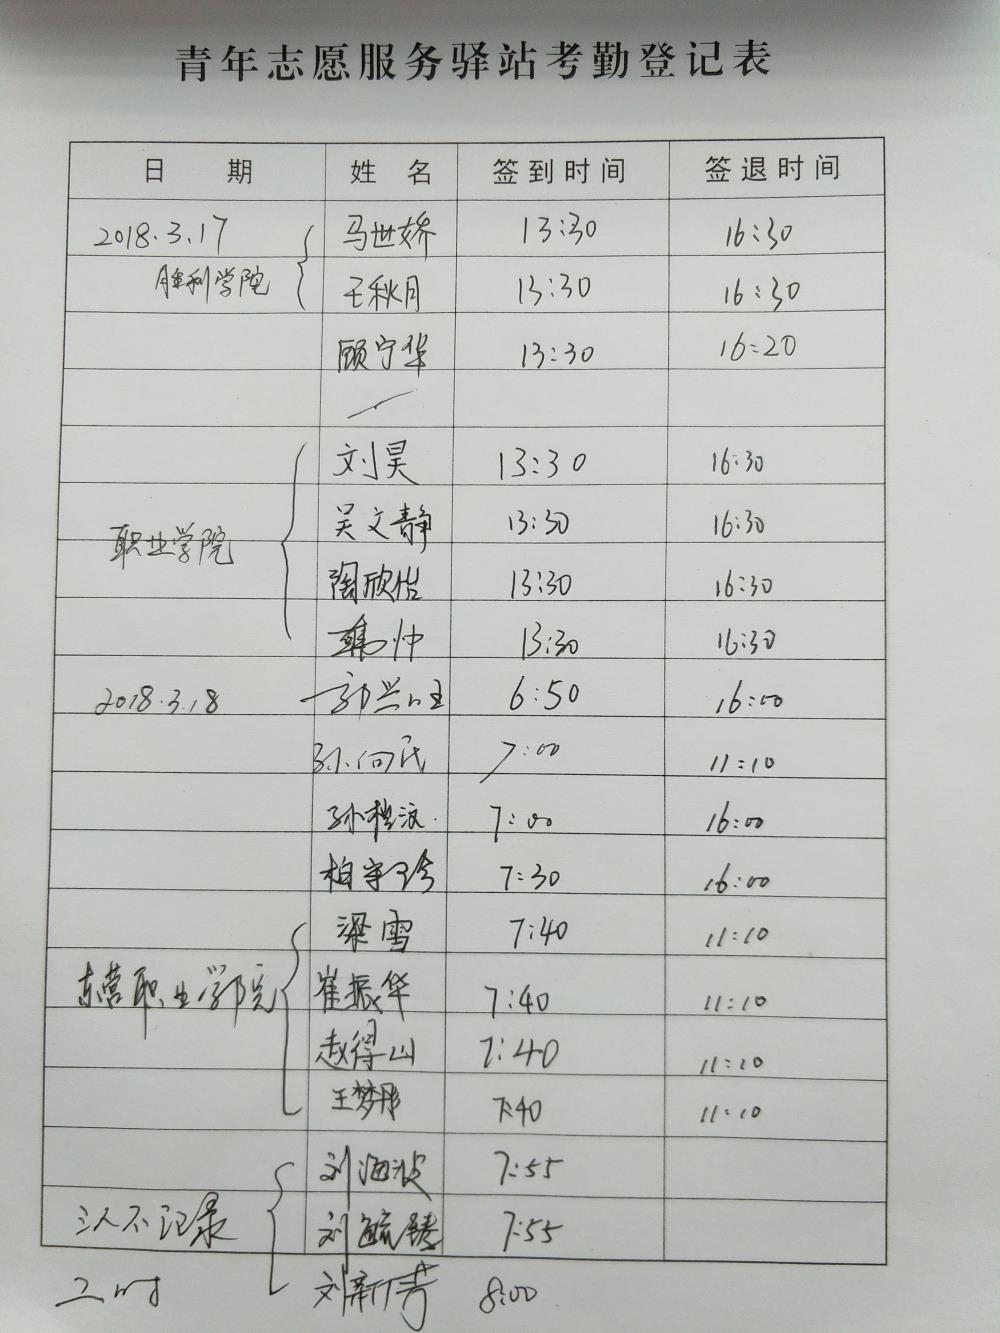 青年志愿服务驿站考勤登记表
日 期 姓 名 签到时间 签退时间
2018.3.17 马世娇 13:30 16:30
胜利学院 王秋月 13:30 16:30
顾宁华 13:30 16:20
刘昊 13:30 16:30
吴文静 13:30 16:30
职业学院
陶欣怡 13:30 16:30
韩帅 13:30 16:30
2018.3.18 郭兰 6:50 16:00
孙向民 7:00 11:10
孙 7:00 16:00
柏宇玲 7:30 16:00
梁雪 7:40 11:10
东营职业学院 崔振华 7:40 11:10
赵得山 7:40 11:10
王梦彤 7:40 11:10
刘海波 7:55
三人不记录 刘毓臻 7:55
工时 刘新芳 8:00